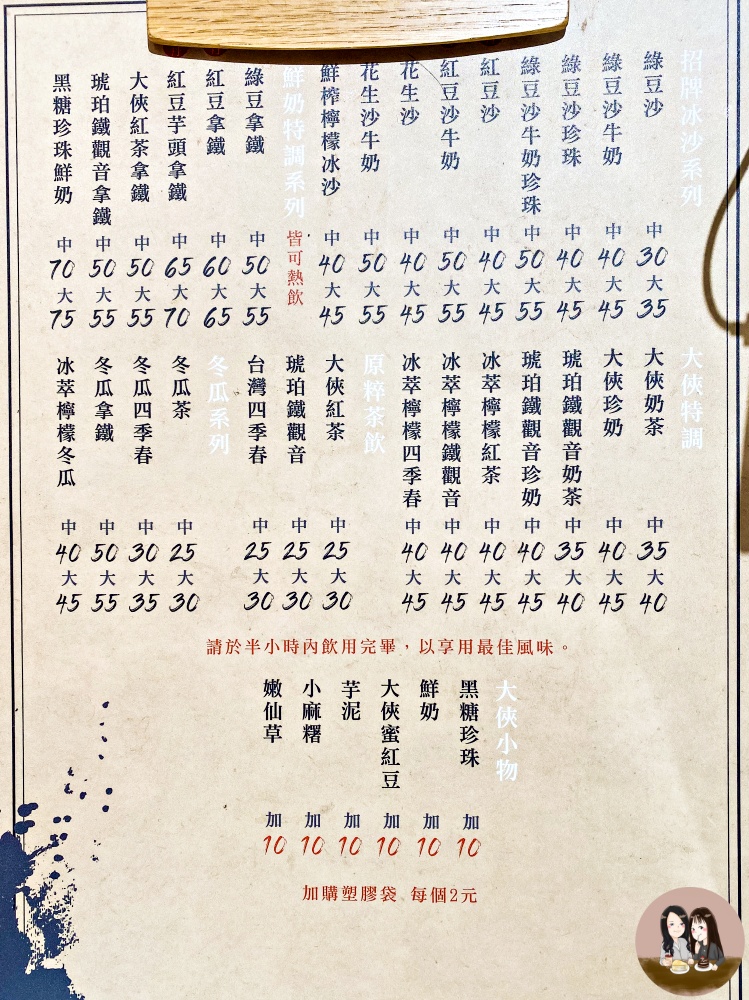 招牌冰沙系列
綠豆沙 中30 大35
綠豆沙牛奶 中40 大45
綠豆沙珍珠 中40 大45
綠豆沙牛奶珍珠 中50 大55
紅豆沙 中40 大45
紅豆沙牛奶 中50 大55
花生沙 中40 大45
花生沙牛奶 中50 大55
鮮榨檸檬冰沙 中40 大45
鮮奶特調系列 皆可熱飲
綠豆拿鐵 中50 大55
紅豆拿鐵 中60 大65
紅豆芋頭拿鐵 中65 大70
大俠紅茶拿鐵 中50 大55
琥珀鐵觀音拿鐵 中50 大55
黑糖珍珠鮮奶 中70 大75
大俠特調
大俠奶茶 中35 大40
大俠珍奶 中40 大45
琥珀鐵觀音奶茶 中35 大40
琥珀鐵觀音珍奶 中40 大45
冰萃檸檬紅茶 中40 大45
冰萃檸檬鐵觀音 中40 大45
冰萃檸檬四季春 中40 大45
原粹茶飲
大俠紅茶 中25 大30
琥珀鐵觀音 中25 大30
台灣四季春 中25 大30
冬瓜系列
冬瓜茶 中25 大30
冬瓜四季春 中30 大35
冬瓜拿鐵 中50 大55
冰萃檸檬冬瓜 中40 大45
請於半小時內飲用完畢，以享用最佳風味。
大俠小物
黑糖珍珠 加10
鮮奶 加10
大俠蜜紅豆 加10
芋泥 加10
小麻糬 加10
嫩仙草 加10
加購塑膠袋 每個2元